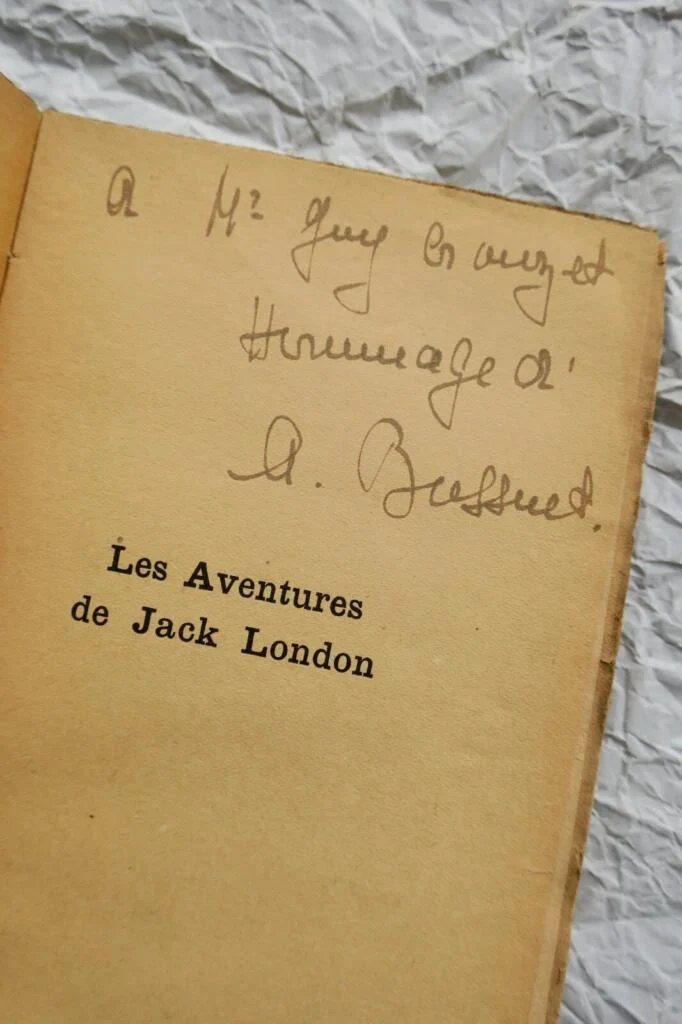 A Mr Guy Crouzet
Hommage d'
A. Bossuet.
Les Aventures
de Jack London